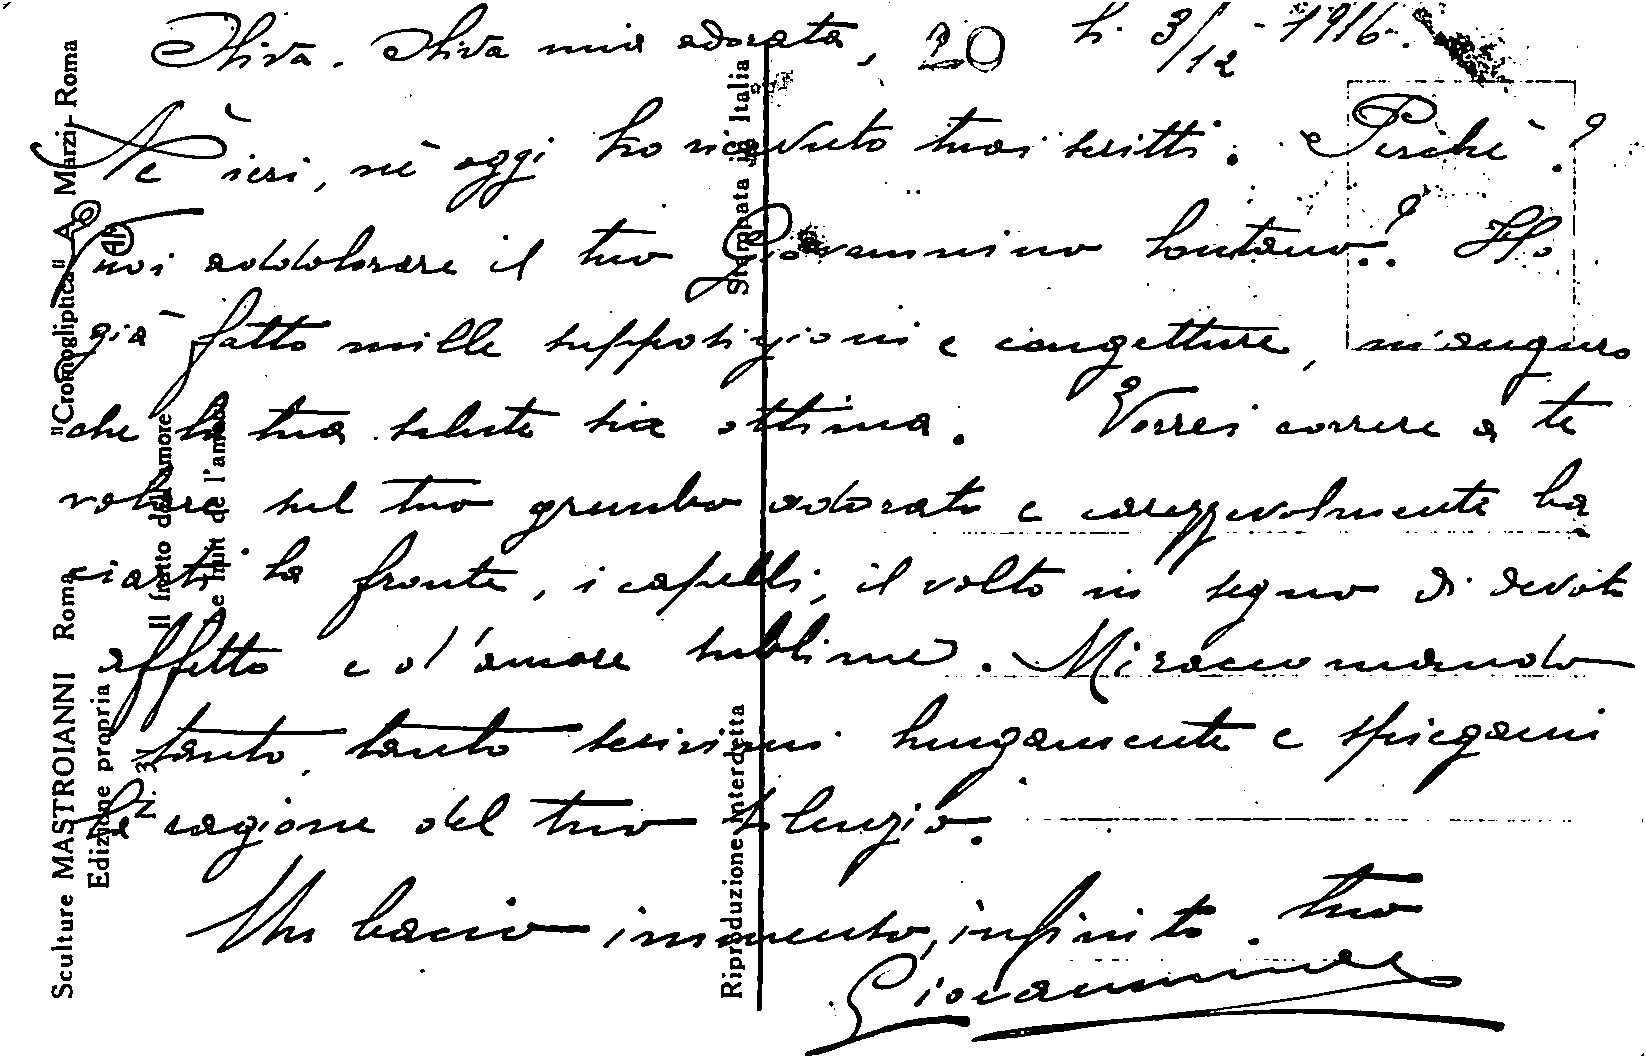 Oliva. Oliva mia adorata, 20 h. 3/12 - 1916.
Nè ieri, nè oggi ho ricevuto tuoi scritti. Perchè?
Vuoi addolorare il tuo Giovannino lontano? Ho
già fatto mille supposizioni e congetture, m'auguro
che la tua salute sia ottima. Vorrei correre a te
volare sul tuo grembo adorato e carezzevolmente ba
ciarti la fronte, i capelli, il volto in segno di devoto
affetto e d'amore sublime. Mi raccomando
tanto, tanto scrivimi lungamente e spiegami
la ragione del tuo silenzio.
Un bacio immenso, infinito. tuo
Giovannino
Sculture MASTROIANNI Roma "Cromogliptica" A. Marzi - Roma
Edizione propria
N. 34
Il frutto dell'amore
Le fruit de l'amour
Riproduzione interdetta Stampata in Italia